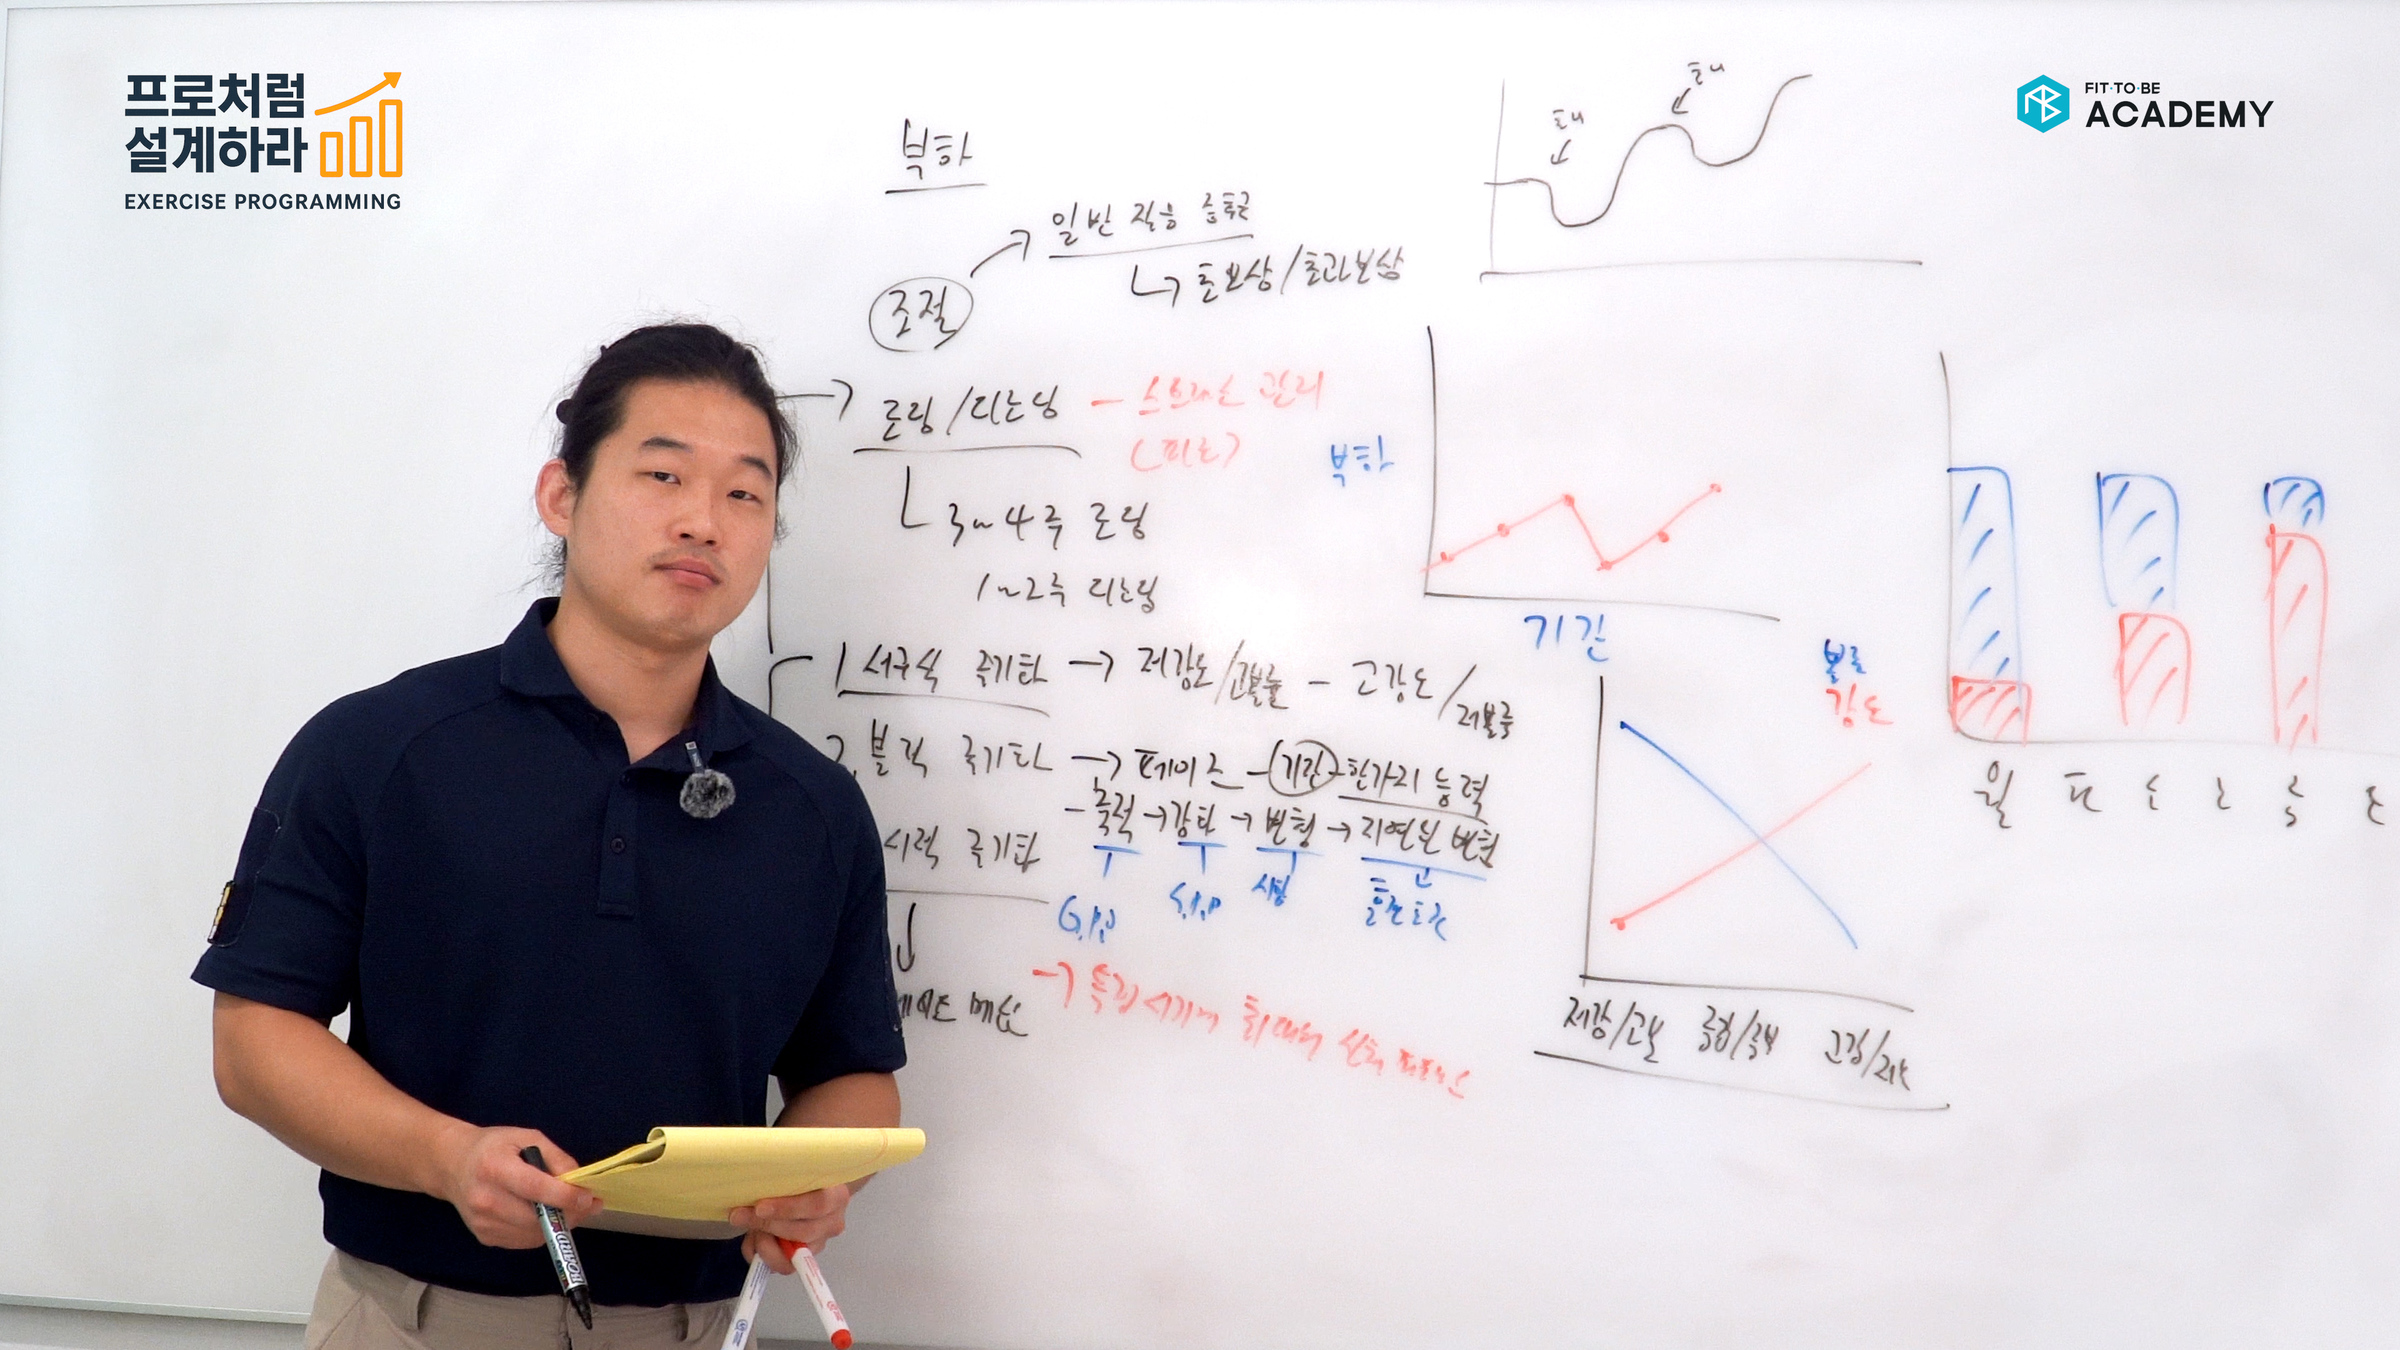 프로처럼
설계하라
EXERCISE PROGRAMMING
FIT·TO·BE
ACADEMY
부하
일반 적응 증후군
↳ 초보상/초과보상
조절
로딩/디로딩 - 스트레스 관리
(피로)
3~4주 로딩
1~2주 디로딩
부하
기간
1 서구식 주기화 → 저강도/고볼륨 - 고강도/저볼륨
2. 블럭 주기화 → 페이즈 - 기간 - 한가지 능력
- 축적 → 강화 → 변형 → 지연된 변형
G.P.P
S.P.P
시합
주기화
→ 특정시기에
볼륨
강도
저강/고볼 중강/중볼 고강/저볼
월 화 수 금
BOARD